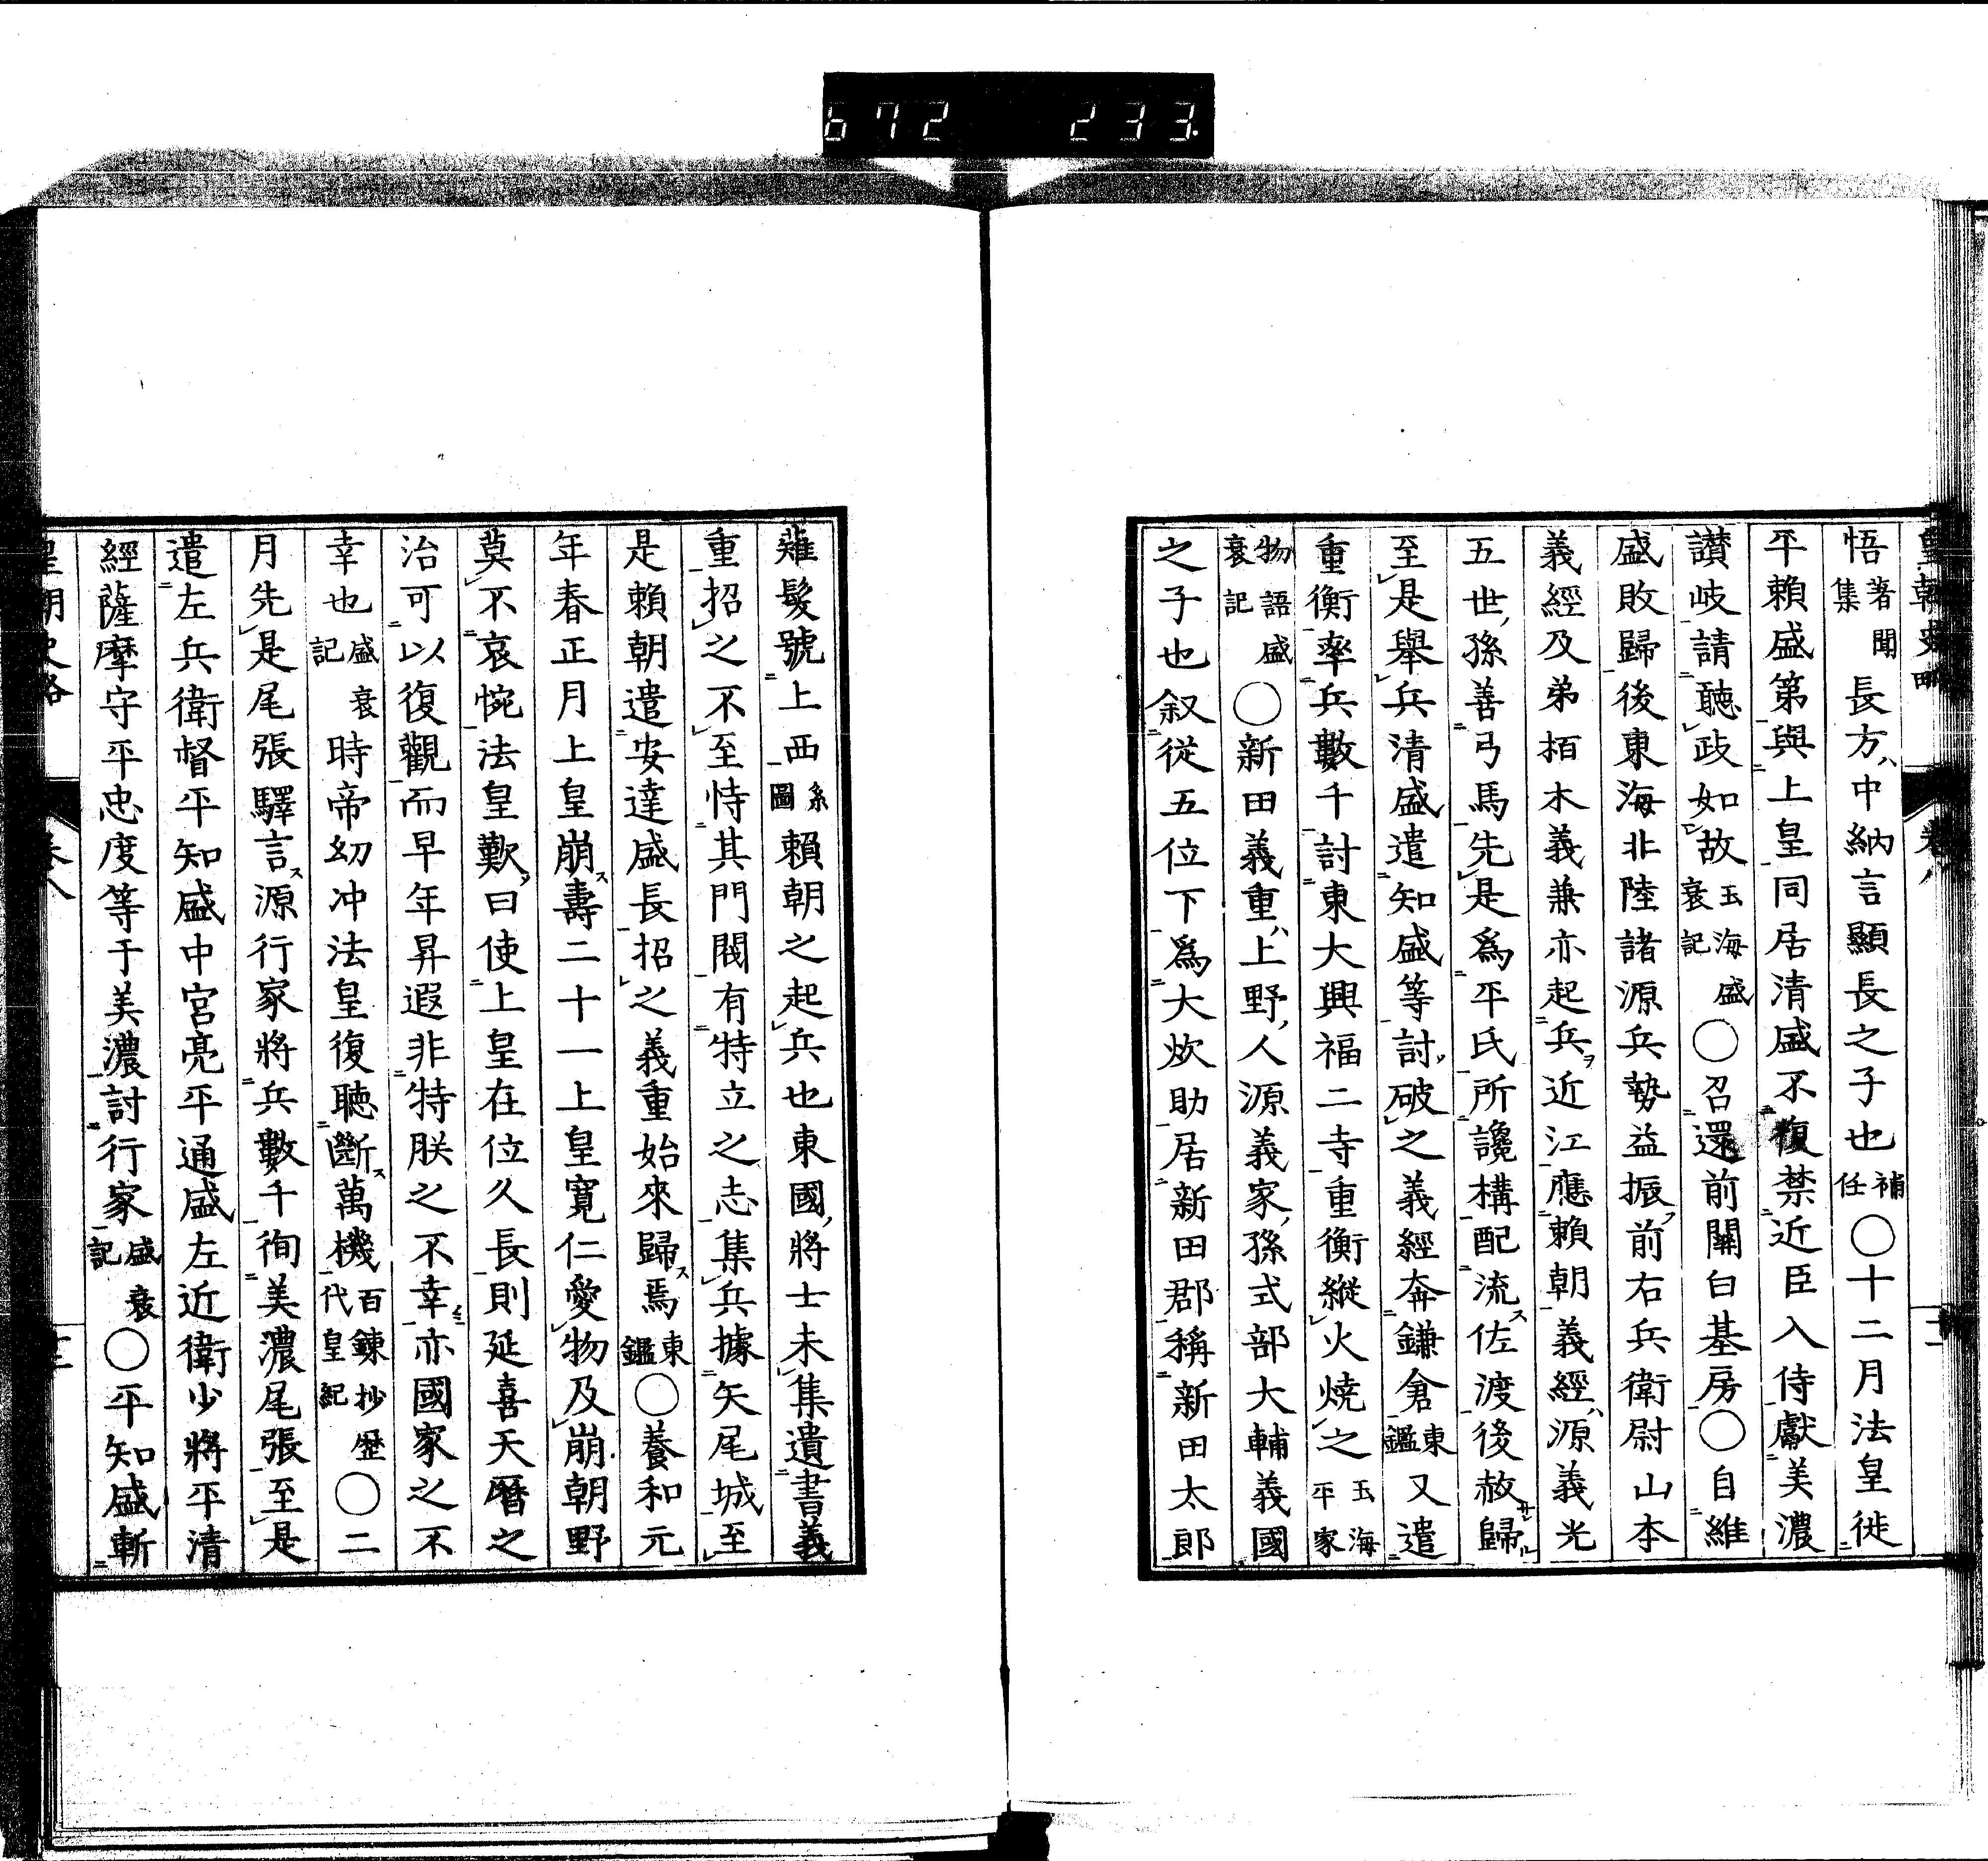 672 233
悟著聞集長方中納言顯長之子也補任〇十二月法皇徙
平賴盛第與上皇同居清盛不復禁近臣入侍獻美濃
讃岐請聽政如故玉海盛衰記〇召還前關白基房〇自維
盛敗歸後東海北陸諸源兵勢益振前右兵衛尉山本
義經及弟栢木義兼亦起兵近江應賴朝義經源義光
五世孫善弓馬先是爲平氏所讒構配流佐渡後赦歸
至是舉兵清盛遣知盛等討破之義經奔鎌倉東鑑又遣
重衡率兵數千討東大興福二寺重衡縱火燒之玉海平家
物語盛衰記〇新田義重上野人源義家孫式部大輔義國
之子也叙從五位下爲大炊助居新田郡稱新田太郎
薙髮號上西系圖賴朝之起兵也東國將士未集遺書義
重招之不至恃其門閥有特立之志集兵據矢尾城至
是賴朝遣安達盛長招之義重始來歸焉東鑑〇養和元
年春正月上皇崩壽二十一上皇寬仁愛物及崩朝野
莫不哀惋法皇歎曰使上皇在位久長則延喜天曆之
治可以復觀而早年昇遐非特朕之不幸亦國家之不
幸也盛衰記時帝幼冲法皇復聽斷萬機百鍊抄歷代皇紀〇二
月先是尾張驛言源行家將兵數千徇美濃尾張至是
遣左兵衛督平知盛中宮亮平通盛左近衛少將平清
經薩摩守平忠度等于美濃討行家盛衰記〇平知盛斬